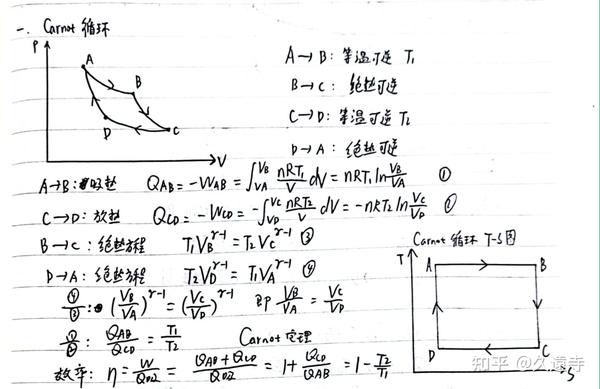 一. Carnot 循环
P
A
B
D
C
V
A→B: 等温可逆 T₁
B→C: 绝热可逆
C→D: 等温可逆 T₂
D→A: 绝热可逆
A→B: 吸热 Q_AB = -W_AB = ∫_{V_A}^{V_B} nRT₁/V dV = nRT₁ ln V_B/V_A ①
C→D: 放热 Q_CD = -W_CD = -∫_{V_D}^{V_C} nRT₂/V dV = -nRT₂ ln V_C/V_D ②
B→C: 绝热方程 T₁V_B^{γ-1} = T₂V_C^{γ-1} ③
D→A: 绝热方程 T₂V_D^{γ-1} = T₁V_A^{γ-1} ④
④/③: (V_B/V_A)^{γ-1} = (V_C/V_D)^{γ-1} 即 V_B/V_A = V_C/V_D
①/②: Q_AB/Q_CD = T₁/T₂ Carnot 定理
效率: η = W/Q吸 = (Q_AB + Q_CD)/Q吸 = 1 + Q_CD/Q_AB = 1 - T₂/T₁
Carnot 循环 T-S图
T
A
B
D
C
S
知乎 @久遠寺